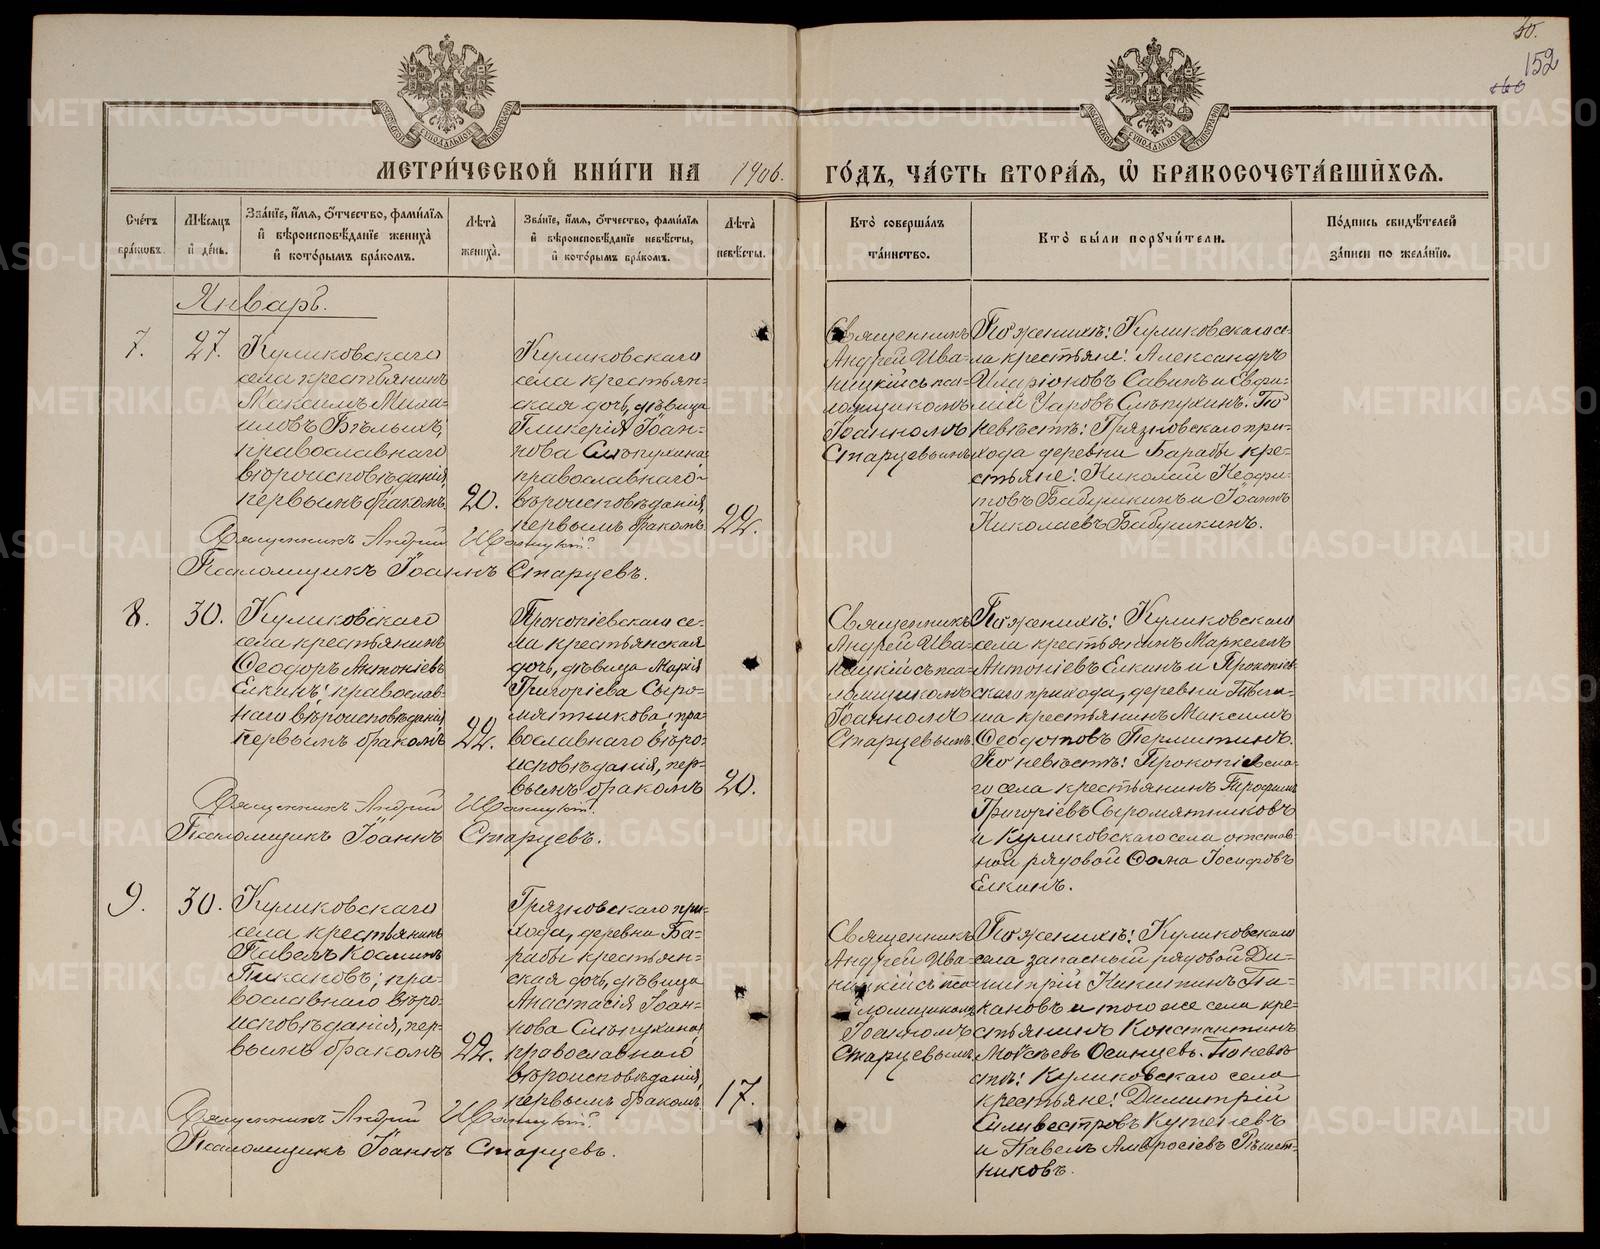 10.
152
МЕТРИ́ЧЕСКОЙ КНИ́ГИ НА 1906. ГО́ДЪ, ЧА́СТЬ ВТОРА́Я, Ѡ҆ БРАКОСОЧЕТА́ВШИХСЯ.
Сче́тъ бра́кѡвъ.
Мѣ́сяцъ и҆ де́нь.
Зва́нїе, и҆́мя, ѻ҆́тчество, фами́лїя и҆ вѣроисповѣ́данїе жениха̀ и҆ кото́рымъ бра́комъ.
Лѣ́та жениха̀.
Зва́нїе, и҆́мя, ѻ҆́тчество, фами́лїя и҆ вѣроисповѣ́данїе невѣ́сты, и҆ кото́рымъ бра́комъ.
Лѣ́та невѣ́сты.
Кто̀ соверша́лъ та́инство.
Кто̀ бы́ли порꙋчи́тели.
По́дпись свидѣ́телей за́писи по жела́нїю.
Январь.
7.
27.
Куликовскаго
села крестьянинъ
Максимъ Миха-
иловъ Бѣлыхъ,
православнаго
вѣроисповѣданія,
первымъ бракомъ.
20.
Куликовскаго
села крестьян-
ская дочь, дѣвица
Гликерія Іоан-
нова Слѣпухина,
православнаго
вѣроисповѣданія,
первымъ бракомъ.
22.
Священникъ
Андрей Ива-
ницкій съ пса-
ломщикомъ
Іоанномъ
Старцевымъ.
По женихѣ: Куликовскаго се-
ла крестьяне: Александръ
Иларіоновъ Савинъ и Евфи-
мій Уаровъ Слѣпухинъ. По
невѣстѣ: Грязновскаго при-
хода деревни Барабы кре-
стьяне: Николай Неофи-
товъ Бабушкинъ и Іоаннъ
Николаевъ Бабушкинъ.
Священникъ Андрей Иваницкій.
Псаломщикъ Іоаннъ Старцевъ.
8.
30.
Куликовскаго
села крестьянинъ
Ѳеодоръ Антоніевъ
Елкинъ, православ-
наго вѣроисповѣданія,
первымъ бракомъ
22.
Прокопіевскаго се-
ла крестьянская
дочь, дѣвица Марія
Григоріева Сыро-
мятникова, пра-
вославнаго вѣро-
исповѣданія, пер-
вымъ бракомъ
20.
Священникъ
Андрей Ива-
ницкій съ пса-
ломщикомъ
Іоанномъ
Старцевымъ.
По женихѣ: Куликовскаго
села крестьянинъ Маркеллъ
Антоніевъ Елкинъ и Прокопіев-
скаго прихода, деревни
крестьянинъ Максимъ
Ѳеодотовъ Пермитинъ.
По невѣстѣ: Прокопіевска-
го села крестьянинъ Трофимъ
Григоріевъ Сыромятниковъ
и Куликовскаго села отстав-
ной рядовой Ѳома Іосифовъ
Елкинъ.
Священникъ Андрей Иваницкій.
Псаломщикъ Іоаннъ Старцевъ.
9.
30.
Куликовскаго
села крестьянинъ
Павелъ Косминъ
Пикановъ, пра-
вославнаго вѣро-
исповѣданія, пер-
вымъ бракомъ
22.
Грязновскаго при-
хода, деревни Ба-
рабы крестьян-
ская дочь, дѣвица
Анастасія Іоан-
нова Слѣпухина,
православнаго
вѣроисповѣданія,
первымъ бракомъ.
17.
Священникъ
Андрей Ива-
ницкій съ пса-
ломщикомъ
Іоанномъ
Старцевымъ.
По женихѣ: Куликовскаго
села запасный рядовой Ди-
митрій Никитинъ Пи-
кановъ и того же села кре-
стьянинъ Константинъ
Моѵсеевъ Осинцевъ. По невѣ-
стѣ: Куликовскаго села
крестьяне: Димитрій
Силвестровъ Кутеневъ
и Павелъ Амвросіевъ Рѣшет-
никовъ.
Священникъ Андрей Иваницкій.
Псаломщикъ Іоаннъ Старцевъ.
METRIKI.GASO-URAL.RU